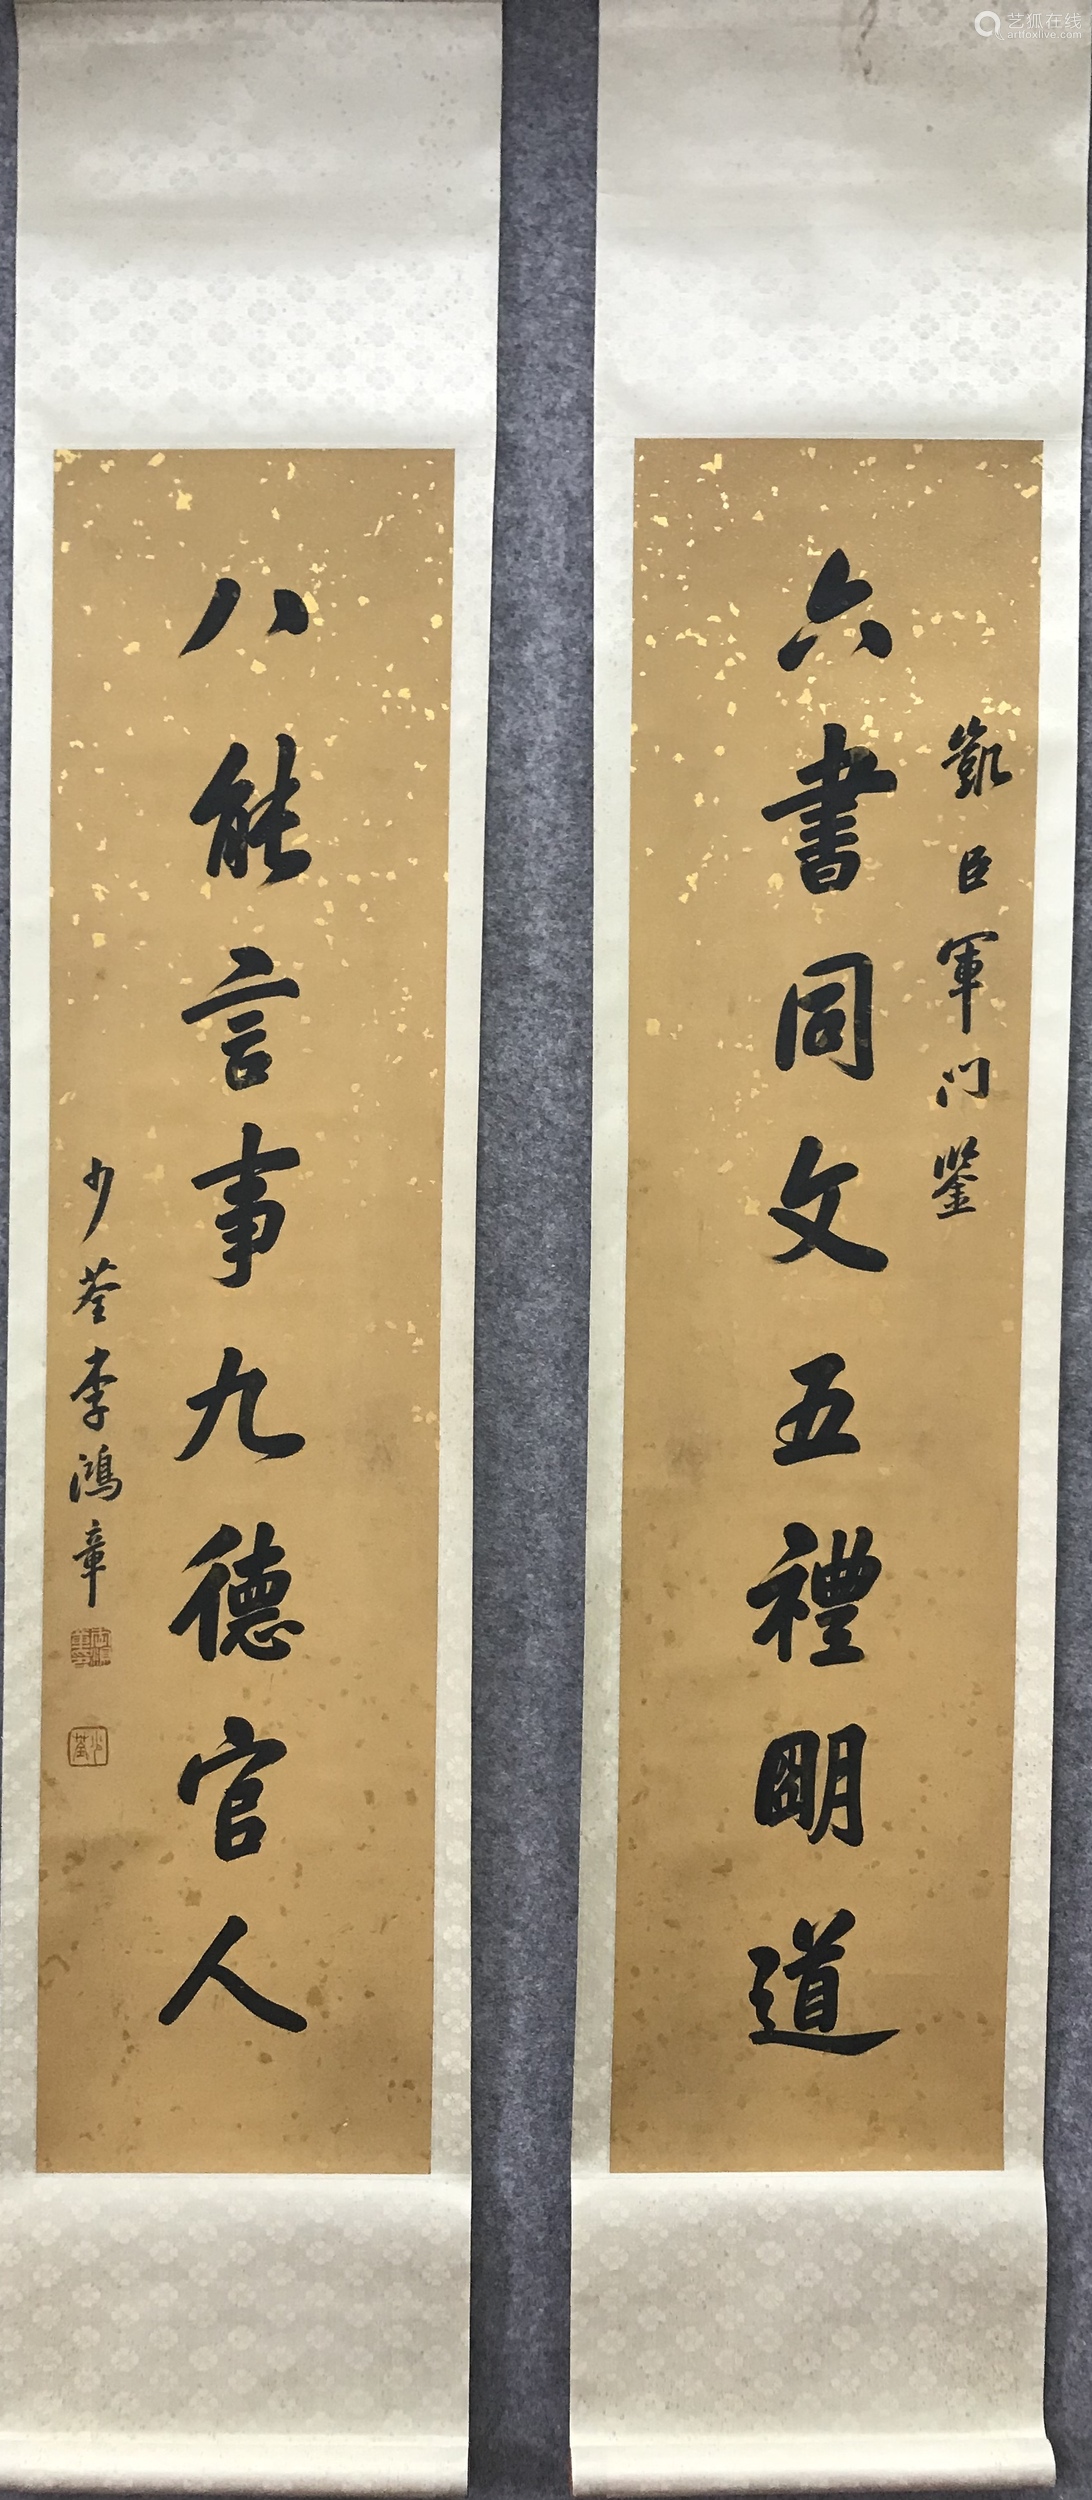 凱臣軍门鉴
六書同文五禮明道
八能言事九德官人
少荃李鴻章
少荃
艺狐在线
artfoxlive.com